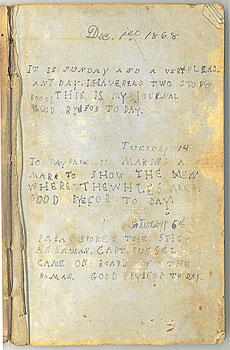 Dec. 1868
IT IS SUNDAY AND A VERY PLEAS
ANT DAY. I HAVE READ TWO STORY
BOOKS. THIS IS MY JOURNAL
GOOD BYE FOR TO DAY.
TUESDAY 14
TO DAY PAPA IS MAKING A
MARK TO SHOW THE MEN
WHERE THE WHLES ARE.
GOOD BYE FOR TO DAY.
PAPA SPOKE THE SHI
CAME ON BOARD OF THE
ROMAN. GOOD BYE FOR TO DAY.